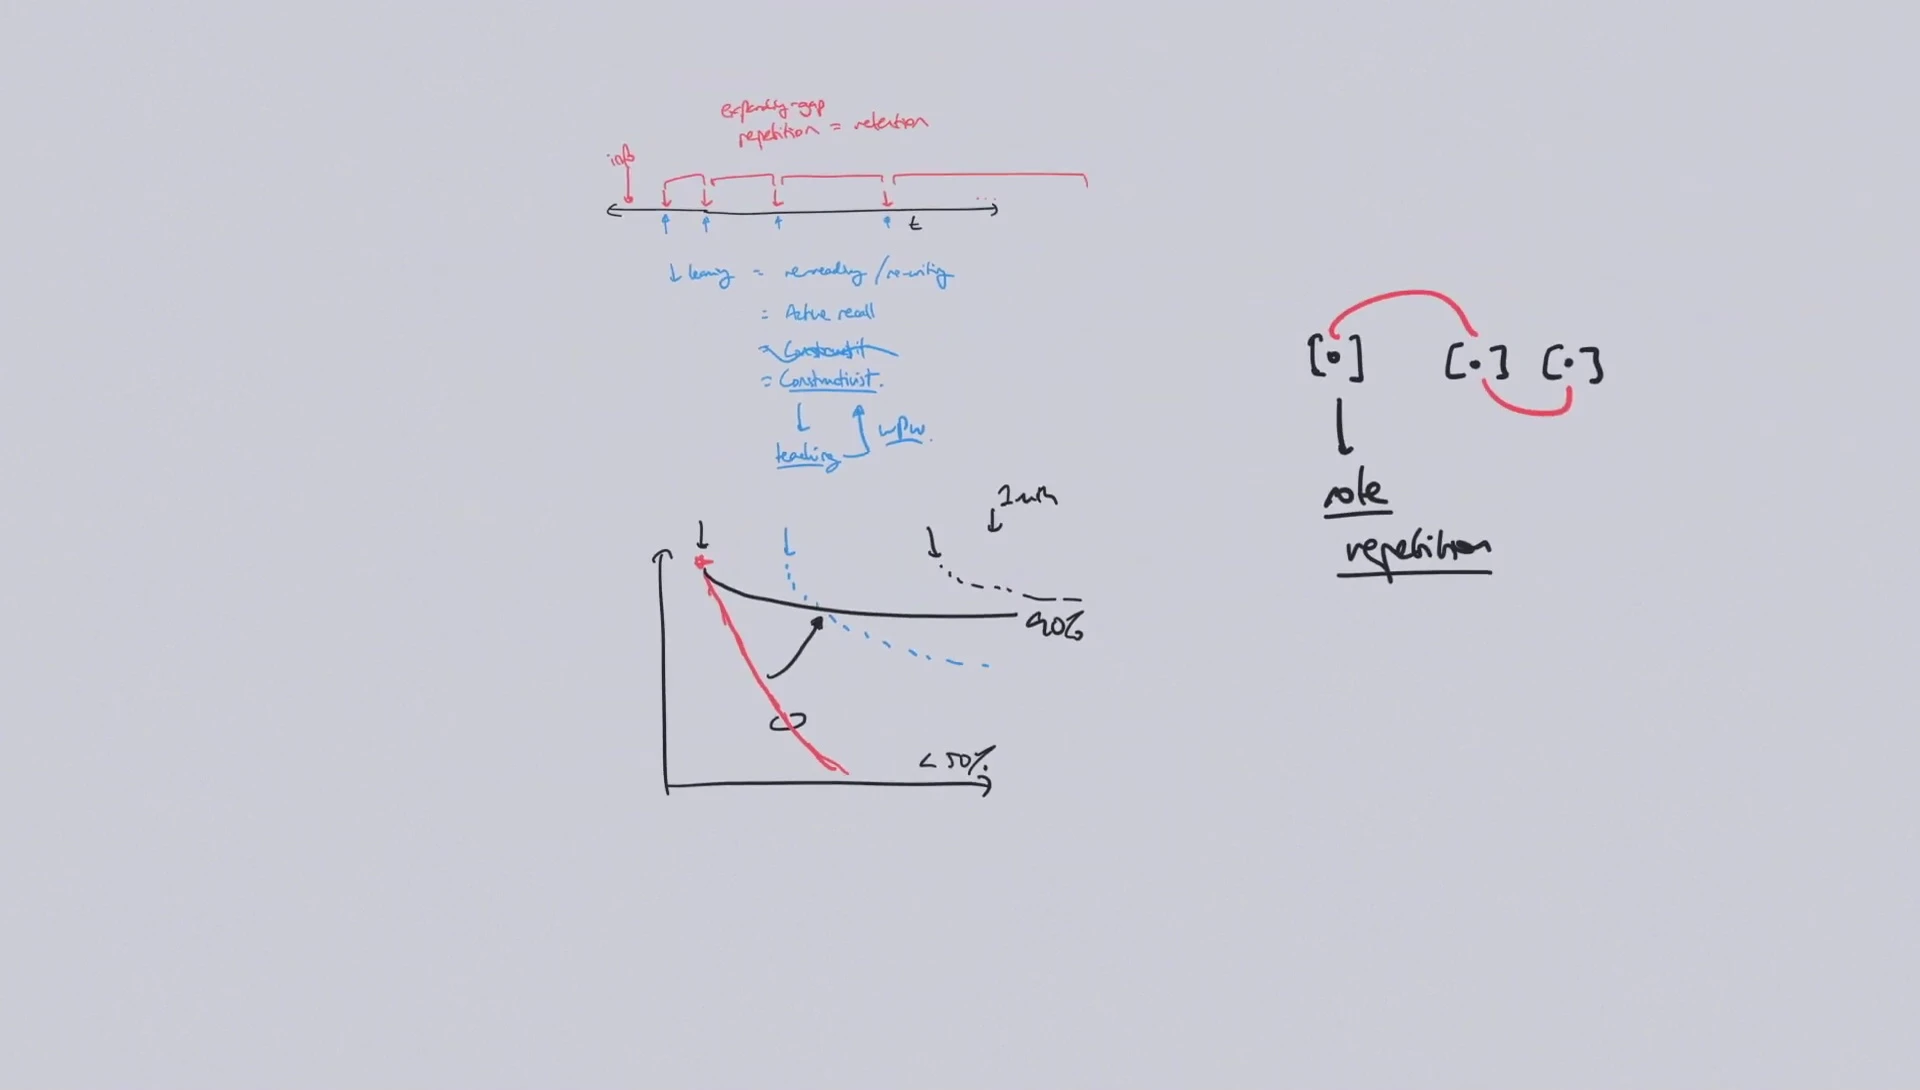 expanding-gap
repetition = retention
info
...
t
↓ learning = re-reading / re-writing
= Active recall
= Constructivist.
teaching
WPW.
1 mth
90%
< 50%
[•] [•] [•]
rote
repetition